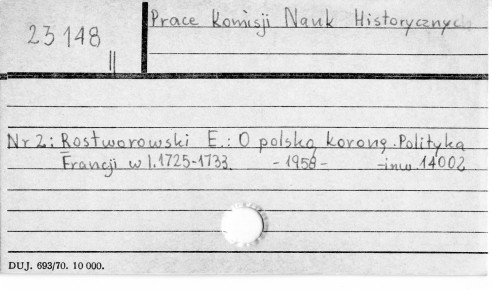 23148
Prace Komisji Nauk Historycznych
Nr 2: Rostworowski E.: O polską koronę. Polityka
Francji w l. 1725-1733. - 1958 - - inw. 14002
DUJ. 693/70. 10 000.